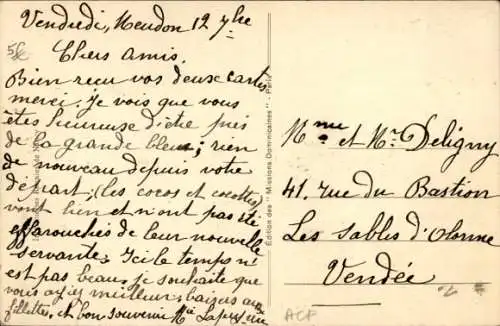 Vendredi, Meudon 12 7bre
Chers amis.
Bien reçu vos deux cartes
merci. Je vois que vous
êtes heureuse d'être près
de la grande bleue; rien
de nouveau depuis votre
départ; (les cocos et cocottes)
vont bien et n'ont pas été
effarouchés de leur nouvelle
servante. Ici le temps n'
est pas beau, je souhaite que
vous ayiez meilleur, baisers aux
fillettes, et bon souvenir
Edition des "Missions Dominicaines" - Paris
Mme et Mr Deligny
41. rue du Bastion
Les Sables d'Olonne
Vendée
ACP